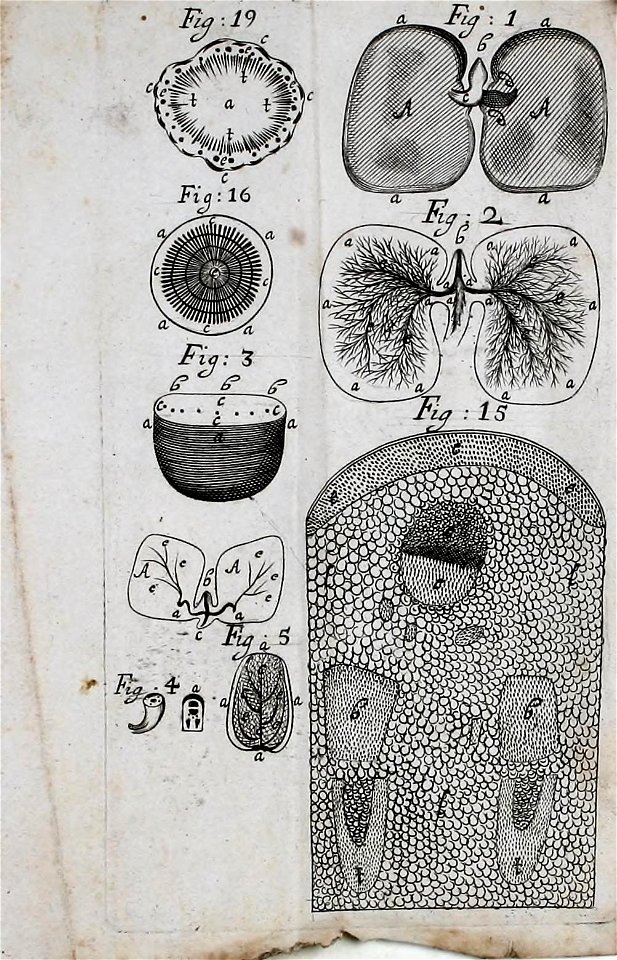 Fig: 19
c
c
c
t
t
a
t
t
e
c
Fig: 16
a
c
a
c
c
e
a
c
a
Fig: 3
b b b
c
c c
c
a a
a
A A
e e
e e
e e
b
a a
c
Fig. 4
c
a
Fig. 5
a
a a
a
Fig: 1
a a
b
c
A A
a a
Fig: 2
b
a a a a
a a a a
e
a a a a
Fig: 15
e
e e
e
a
t
b b
t
t t